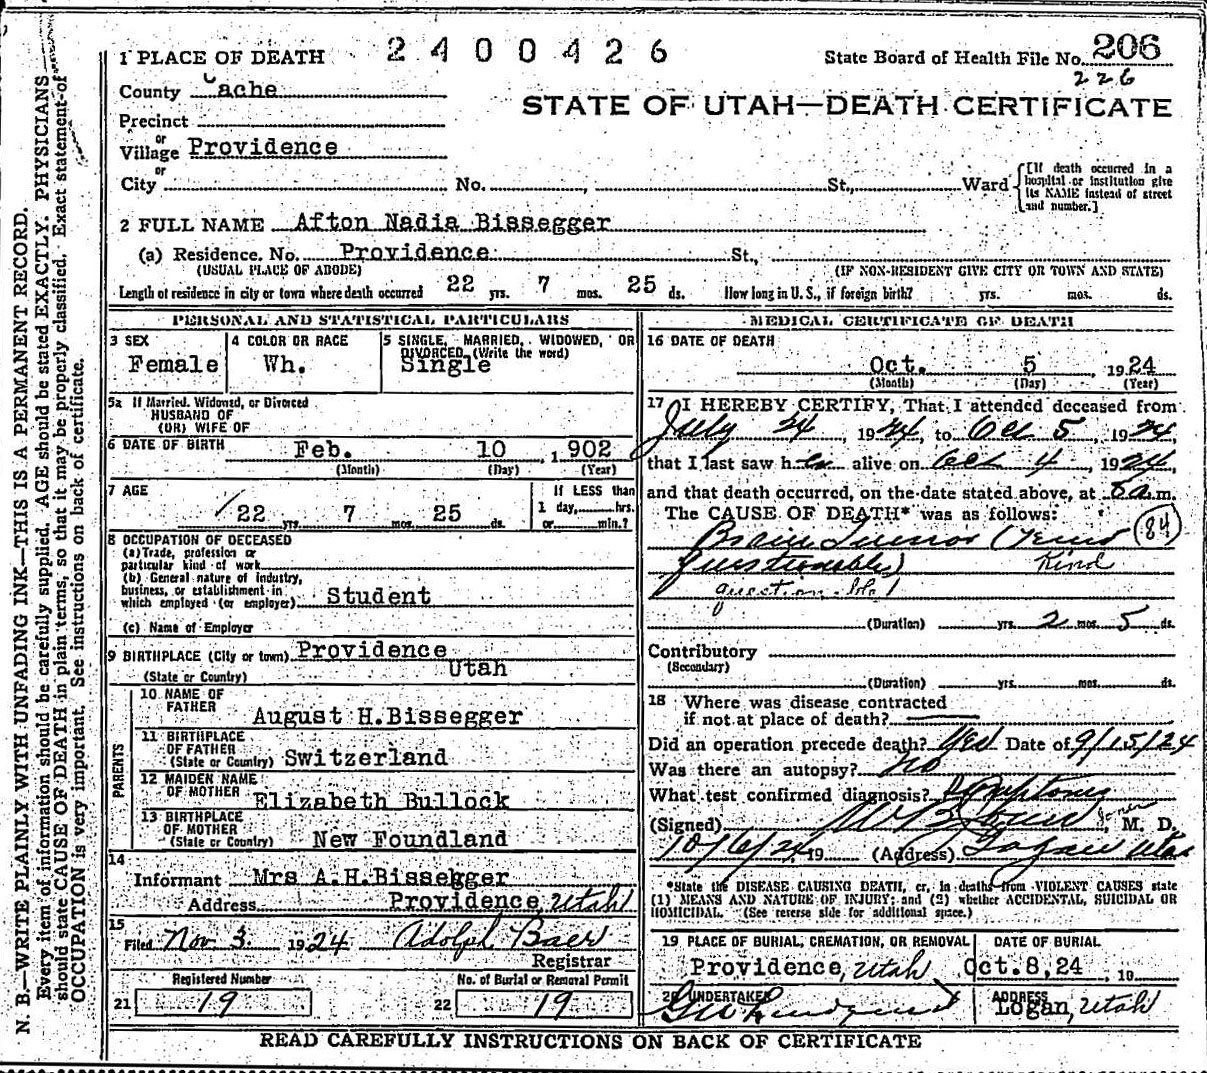 N. B.—WRITE PLAINLY WITH UNFADING INK—THIS IS A PERMANENT RECORD.
Every item of information should be carefully supplied. AGE should be stated EXACTLY. PHYSICIANS
should state CAUSE OF DEATH in plain terms, so that it may be properly classified. Exact statement of
OCCUPATION is very important. See instructions on back of certificate.
2400426
State Board of Health File No. 206
226
STATE OF UTAH—DEATH CERTIFICATE
1 PLACE OF DEATH
County Cache
Precinct
or
Village Providence
or
City No. , St., Ward
[If death occurred in a
hospital or institution give
its NAME instead of street
and number.]
2 FULL NAME Afton Nadia Bissegger
(a) Residence. No. Providence St.,
(USUAL PLACE OF ABODE) (IF NON-RESIDENT GIVE CITY OR TOWN AND STATE)
Length of residence in city or town where death occurred 22 yrs. 7 mos. 25 ds. How long in U. S., if foreign birth? yrs. mos. ds.
PERSONAL AND STATISTICAL PARTICULARS
3 SEX
Female
4 COLOR OR RACE
Wh.
5 SINGLE, MARRIED, WIDOWED, OR
DIVORCED (Write the word)
Single
5a If Married, Widowed, or Divorced
HUSBAND OF
(OR) WIFE OF
6 DATE OF BIRTH Feb. 10 , 1902
(Month) (Day) (Year)
7 AGE
22 yrs. 7 mos. 25 ds.
If LESS than
1 day, hrs.
or min.?
8 OCCUPATION OF DECEASED
(a) Trade, profession or
particular kind of work
(b) General nature of industry,
business, or establishment in
which employed (or employer) Student
(c) Name of Employer
9 BIRTHPLACE (City or town) Providence
(State or Country) Utah
PARENTS
10 NAME OF
FATHER
August H.Bissegger
11 BIRTHPLACE
OF FATHER
(State or Country) Switzerland
12 MAIDEN NAME
OF MOTHER
Elizabeth Bullock
13 BIRTHPLACE
OF MOTHER
(State or Country) New Foundland
14
Informant Mrs A.H.Bissegger
Address Providence, Utah
15
Filed Nov 3 1924 Adolph Baer
Registrar
Registered Number
21 19
No. of Burial or Removal Permit
22 19
MEDICAL CERTIFICATE OF DEATH
16 DATE OF DEATH
Oct. 5 , 1924
(Month) (Day) (Year)
17 I HEREBY CERTIFY, That I attended deceased from
July 24, 1924, to Oct 5, 1924,
that I last saw her alive on Oct 4, 1924,
and that death occurred, on the date stated above, at m.
The CAUSE OF DEATH* was as follows:
84
Brain Tumor
Questionable) Kind
questionable
(Duration) yrs. 2 mos. 5 ds.
Contributory
(Secondary)
(Duration) yrs. mos. ds.
18 Where was disease contracted
if not at place of death?
Did an operation precede death? Yes Date of 9/15/24
Was there an autopsy? No
What test confirmed diagnosis? Symptoms
(Signed) , M. D.
10/6/24 19 (Address) Logan Utah
*State the DISEASE CAUSING DEATH, or, in deaths from VIOLENT CAUSES state
(1) MEANS AND NATURE OF INJURY; and (2) whether ACCIDENTAL, SUICIDAL OR
HOMICIDAL. (See reverse side for additional space.)
19 PLACE OF BURIAL, CREMATION, OR REMOVAL
Providence, Utah
DATE OF BURIAL
Oct.8,24 , 19
20 UNDERTAKER
ADDRESS
Logan, Utah
READ CAREFULLY INSTRUCTIONS ON BACK OF CERTIFICATE